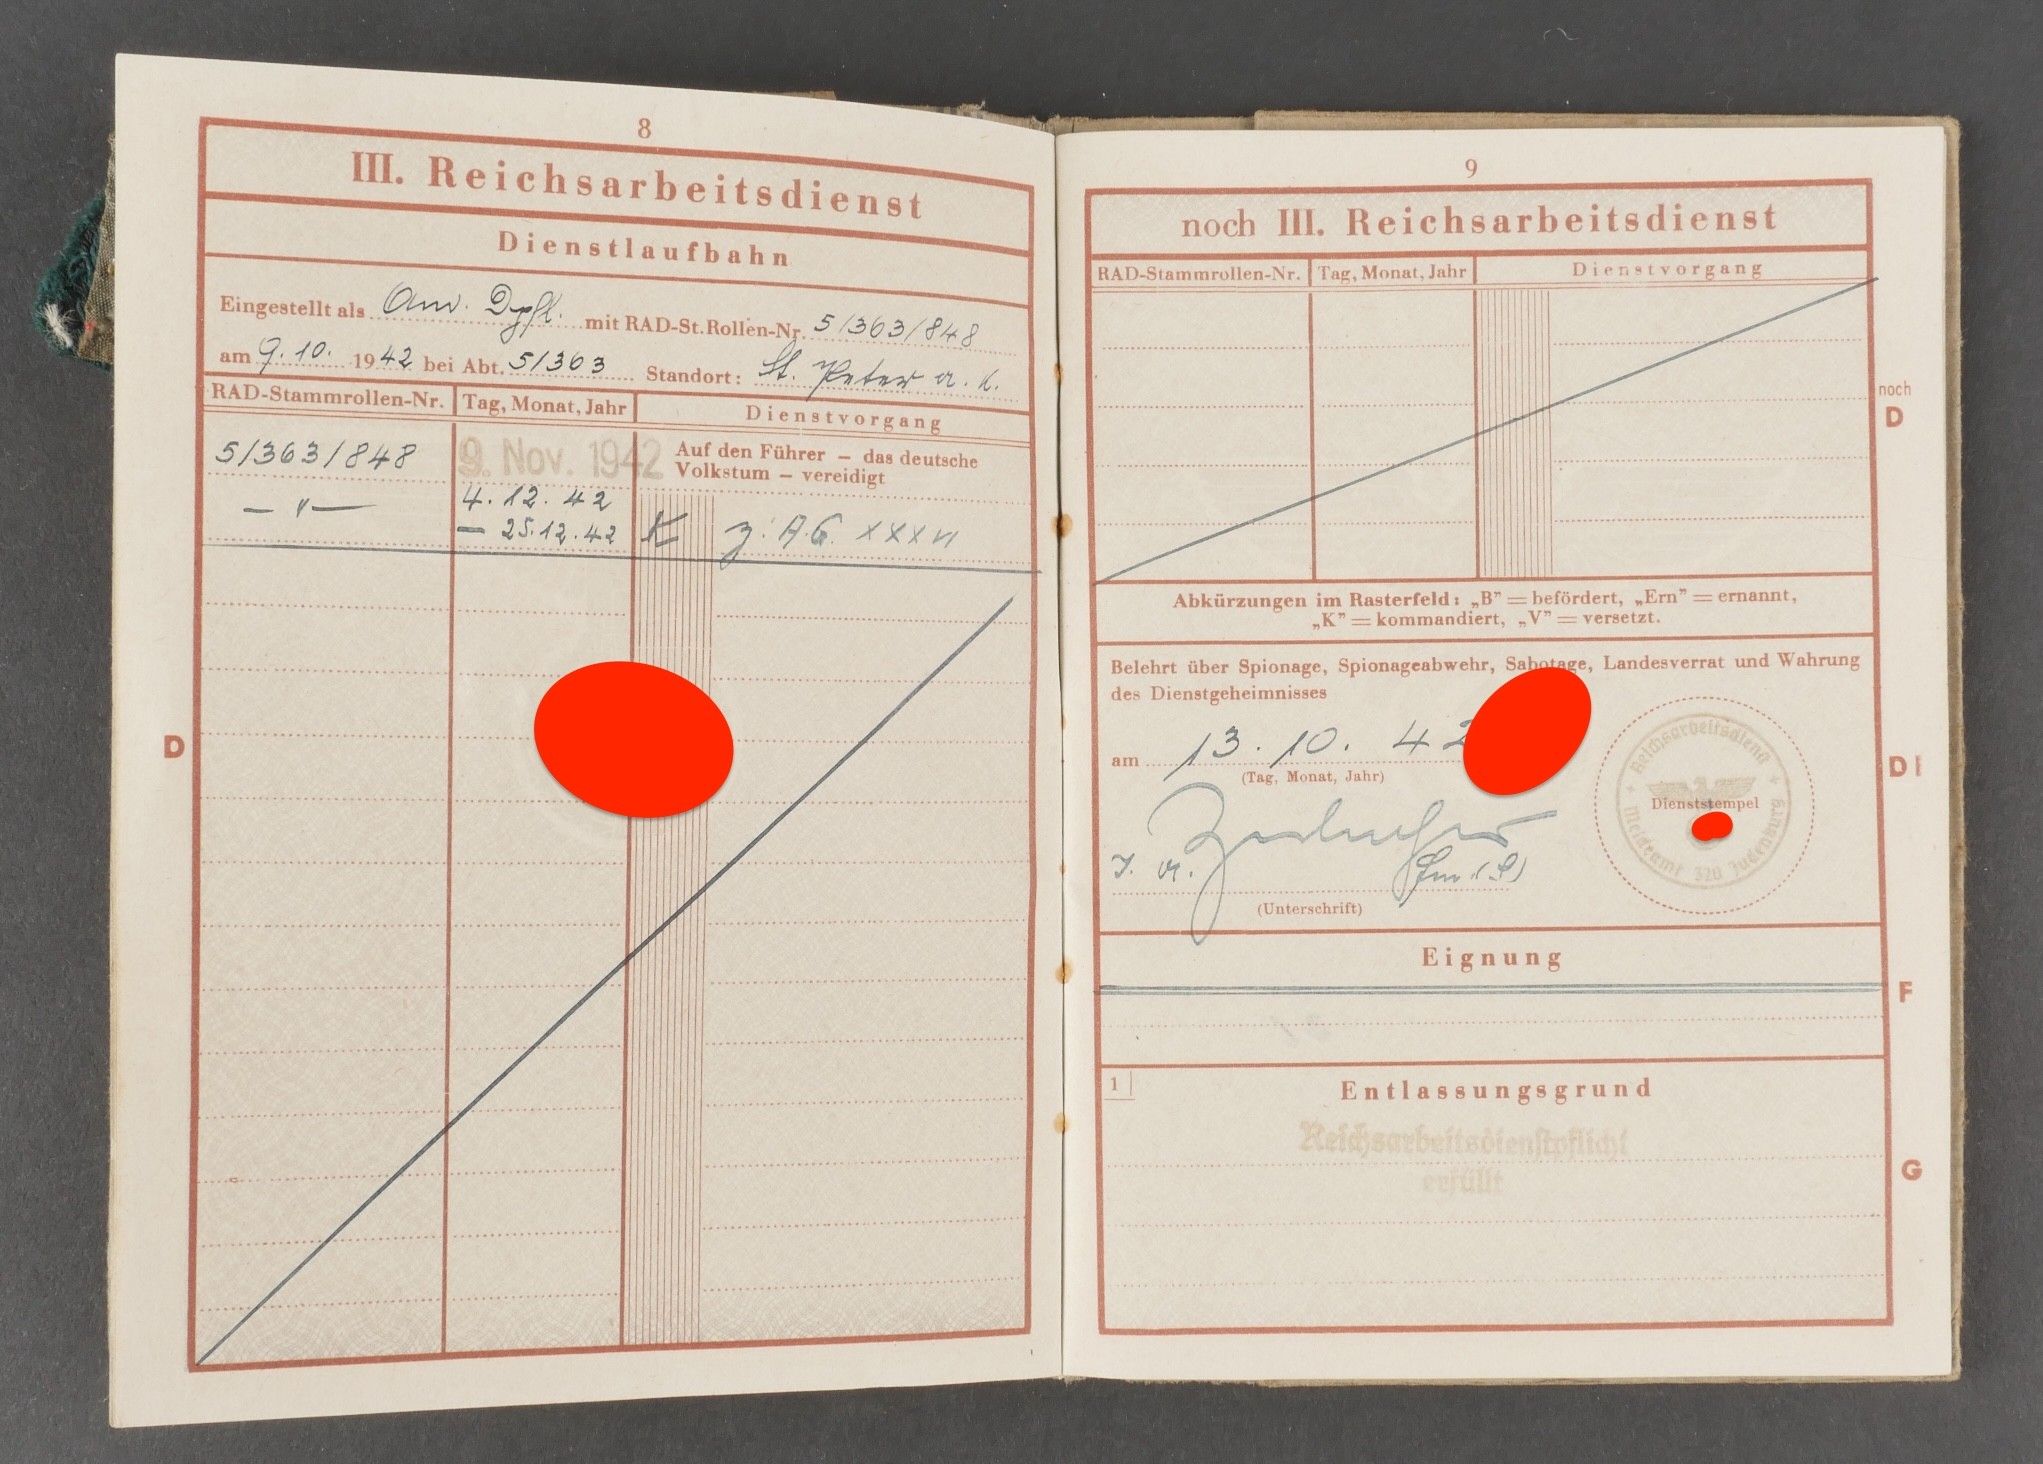 8
III. Reichsarbeitsdienst
Dienstlaufbahn
Eingestellt als Anw. Dpfl. mit RAD-St.Rollen-Nr. 5/363/848
am 9.10. 1942 bei Abt. 5/363 Standort: St. Peter a.
RAD-Stammrollen-Nr. Tag, Monat, Jahr Dienstvorgang
5/363/848 9. Nov. 1942 Auf den Führer – das deutsche
Volkstum – vereidigt
— " — 4.12.42
– 25.12.42 K z. A.G. XXXVI
D
9
noch III. Reichsarbeitsdienst
RAD-Stammrollen-Nr. Tag, Monat, Jahr Dienstvorgang
noch
D
Abkürzungen im Rasterfeld: „B” = befördert, „Ern” = ernannt,
„K” = kommandiert, „V” = versetzt.
Belehrt über Spionage, Spionageabwehr, Sabotage, Landesverrat und Wahrung
des Dienstgeheimnisses
am 13.10.42
(Tag, Monat, Jahr)
I. A.
(Unterschrift)
Reichsarbeitsdienst
Dienststempel
Meldeamt 320 Judenburg
D I
Eignung
F
1
Entlassungsgrund
Reichsarbeitsdienstpflicht
erfüllt
G